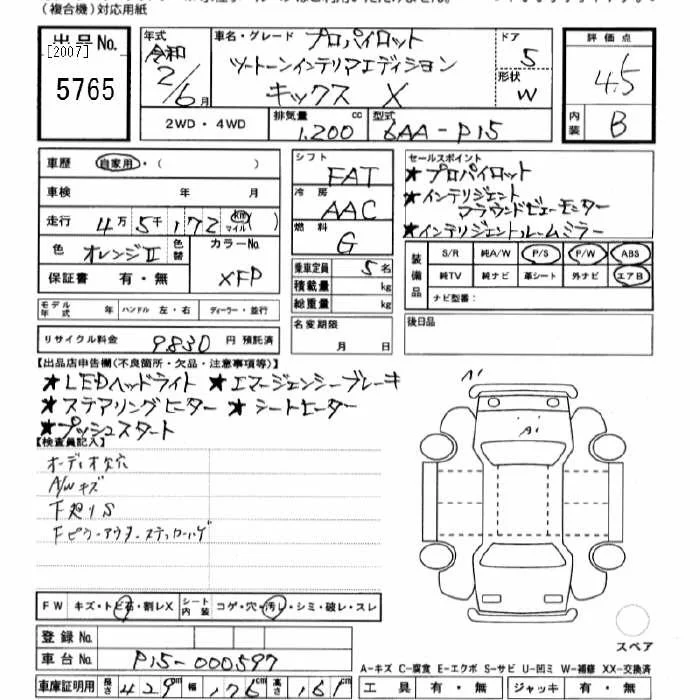 (複合機)対応用紙
出品No.
[2007]
5765
年式 令和 2/6月
車名・グレード プロパイロット
ツートーンインテリアエディション
キックス X
ドア 5
形状 W
評価点 4.5
内装 B
2WD・4WD
排気量 1.200 cc
型式 6AA-P15
車歴 自家用・( )
車検 年 月
走行 4万5千172 km マイル
色 オレンジⅡ 色替 カラーNo. XFP
保証書 有・無
シフト FAT
冷房 AAC
燃料 G
乗車定員 5名
積載量 kg
総重量 kg
セールスポイント
★プロパイロット
★インテリジェント
アラウンドビューモニター
★インテリジェントルームミラー
装備品 S/R 純A/W P/S P/W ABS
純TV 純ナビ 革シート 外ナビ エアB
ナビ型番:
モデル年式 年 ハンドル 左・右 ディーラー・並行
名変期限 月 日
後日品
リサイクル料金 9830 円 預託済
【出品店申告欄(不良箇所・欠品・注意事項等)】
★LEDヘッドライト ★エマージェンシーブレーキ
★ステアリングヒーター ★シートヒーター
★プッシュスタート
【検査員記入】
オーディオ欠穴
A/Wキズ
下廻りS
Fピラーアウターステッカーハゲ
A1
A1
FW キズ・トビ石・割レX シート内装 コゲ・穴・汚レ・シミ・破レ・スレ
登録No.
車台No. P15-000597
スペア
A-キズ C-腐食 E-エクボ S-サビ U-凹ミ W-補修 XX-交換済
車庫証明用 長さ 429cm 幅 176cm 高さ 161cm
工具 有・無 ジャッキ 有・無